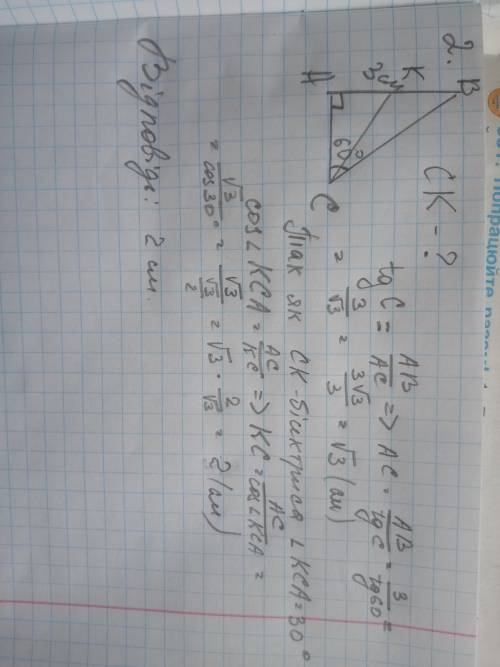 2.
B
K
3см
A
60°
C
CK - ?
tg C = AB/AC => AC = AB/tg C = 3/tg 60 =
= 3/√3 = 3√3/3 = √3 (см)
Так як CK - бісектриса ∠KCA = 30°
cos∠KCA = AC/KC => KC = AC/cos∠KCA =
= √3/cos30° = √3/(√3/2) = √3 · 2/√3 = 2 (см)
Відповідь: 2 см.